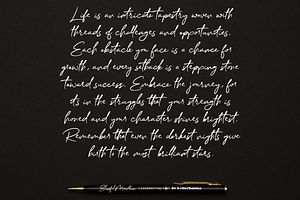 Life is an intricate tapestry woven with
threads of challenges and opportunities.
Each obstacle you face is a chance for
growth, and every setback is a stepping stone
toward success. Embrace the journey, for
it's in the struggles that your strength is
honed and your character shines brightest.
Remember that even the darkest nights give
birth to the most brilliant stars.